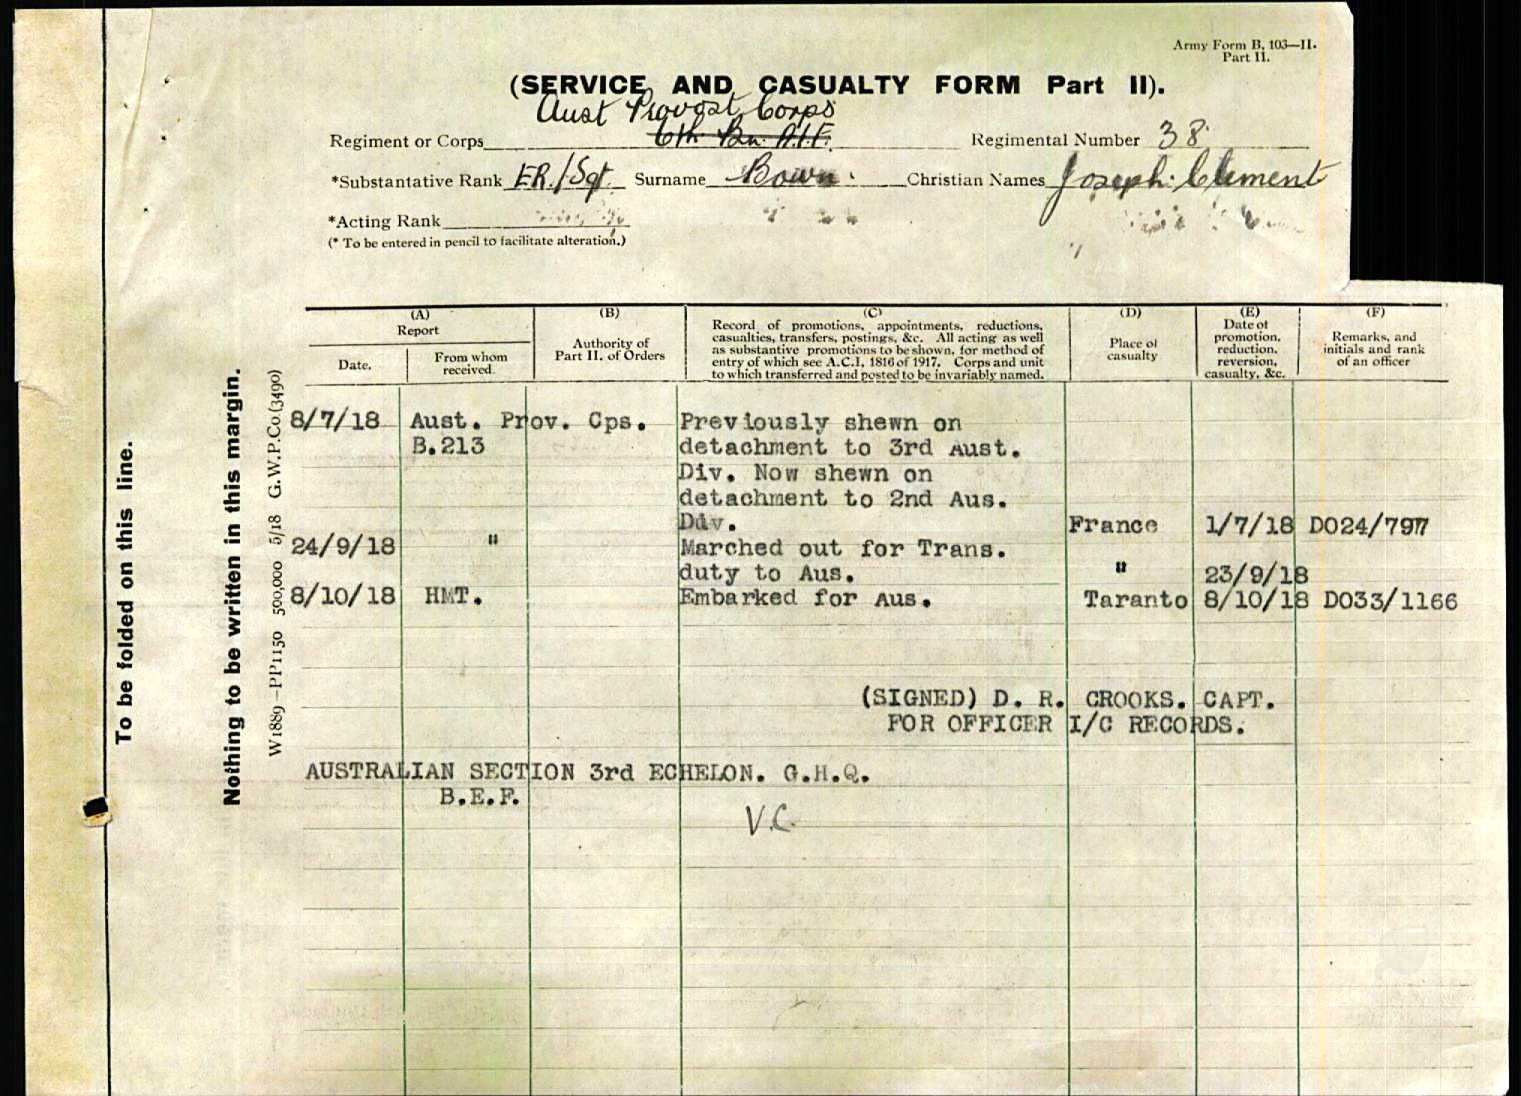 Army Form B. 103—II.
Part II.
(SERVICE AND CASUALTY FORM Part II).
Aust Provost Corps
Regiment or Corps 6th Bn. A.I.F. Regimental Number 38
*Substantative Rank ER./Sgt. Surname Bown. Christian Names Joseph Clement
*Acting Rank
(* To be entered in pencil to facilitate alteration.)
(A) (B) (C) (D) (E) (F)
Report
Date. From whom received.
Authority of Part II. of Orders
Record of promotions, appointments, reductions,
casualties, transfers, postings, &c. All acting as well
as substantive promotions to be shown, for method of
entry of which see A.C.I. 1816 of 1917. Corps and unit
to which transferred and posted to be invariably named.
Place of casualty
Date of promotion, reduction, reversion, casualty, &c.
Remarks, and initials and rank of an officer
8/7/18 Aust. Prov. Cps. Previously shewn on
B.213 detachment to 3rd Aust.
Div. Now shewn on
detachment to 2nd Aus.
Div. France 1/7/18 DO24/797
24/9/18 " Marched out for Trans.
duty to Aus. " 23/9/18
8/10/18 HMT. Embarked for Aus. Taranto 8/10/18 DO33/1166
(SIGNED) D. R. CROOKS. CAPT.
FOR OFFICER I/C RECORDS.
AUSTRALIAN SECTION 3rd ECHELON. G.H.Q.
B.E.F.
V.C.
To be folded on this line.
Nothing to be written in this margin.
W1889—PP1150 500,000 5/18 G.W.P.Co.(3490)